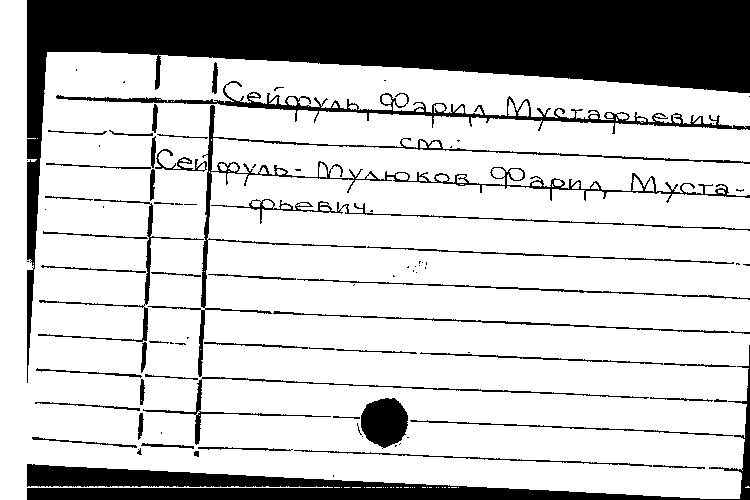 Сейфуль, Фарид Мустафьевич
см.:
Сейфуль-Мулюков, Фарид Муста-
фьевич.